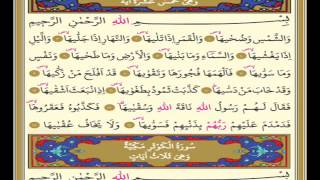 وَهِيَ خَمْسَ عَشْرَةَ اٰيَةً
بِسْمِ اللّٰهِ الرَّحْمٰنِ الرَّحٖيمِ
وَالشَّمْسِ وَضُحٰيهَا وَالْقَمَرِ اِذَا تَلٰيهَا وَالنَّهَارِ اِذَا جَلّٰيهَا وَالَّيْلِ
اِذَا يَغْشٰيهَا وَالسَّمَٓاءِ وَمَا بَنٰيهَا وَالْاَرْضِ وَمَا طَحٰيهَا وَنَفْسٍ
وَمَا سَوّٰيهَا فَاَلْهَمَهَا فُجُورَهَا وَتَقْوٰيهَا قَدْ اَفْلَحَ مَنْ زَكّٰيهَا
وَقَدْ خَابَ مَنْ دَسّٰيهَا كَذَّبَتْ ثَمُودُ بِطَغْوٰيهَا اِذِ انْبَعَثَ اَشْقٰيهَا
فَقَالَ لَهُمْ رَسُولُ اللّٰهِ نَاقَةَ اللّٰهِ وَسُقْيٰيهَا فَكَذَّبُوهُ فَعَقَرُوهَا
فَدَمْدَمَ عَلَيْهِمْ رَبُّهُمْ بِذَنْبِهِمْ فَسَوّٰيهَا وَلَا يَخَافُ عُقْبٰيهَا
سُورَةُ الْكَوْثَرِ مَكِّيَّةٌ
وَهِيَ ثَلَاثُ اٰيَاتٍ
بِسْمِ اللّٰهِ الرَّحْمٰنِ الرَّحٖيمِ